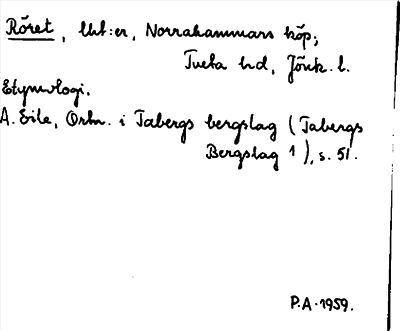 Röret, lht:er, Norrahammars köp;
Tveta hd, Jönk. l.
Etymologi.
A. Eile, Ortn. i Tabergs bergslag (Tabergs
Bergslag 1), s. 51.
P.A. 1959.